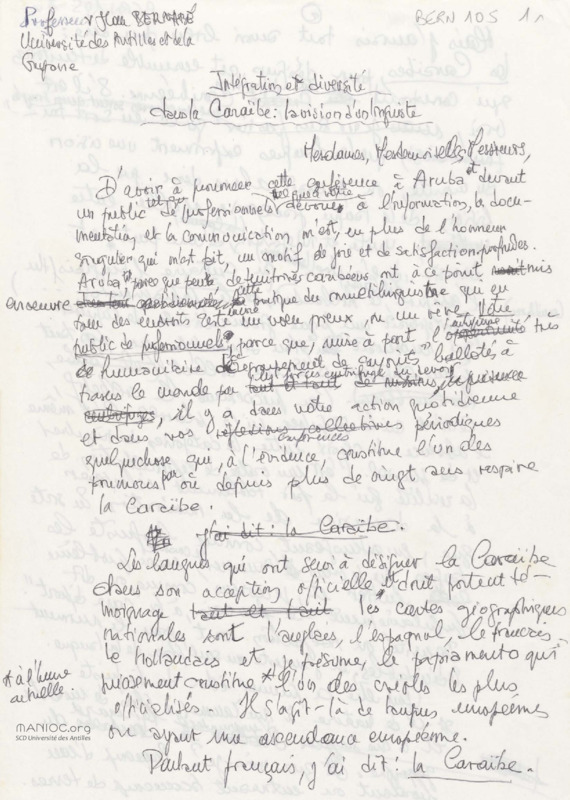 Professeur Jean BERNABÉ
Université des Antilles et de la
Guyane
BERN 105 1r
Intégration et diversité
dans la Caraïbe : la vision d'un linguiste
Mesdames, Mesdemoiselles, Messieurs,
D'avoir à prononcer cette conférence à Aruba et devant
un public de professionnels dévoués à l'information, la docu-
mentation et la communication m'est, en plus de l'honneur
singulier qui m'est fait, un motif de joie et de satisfaction profondes.
Aruba parce que peu de territoires caribéens ont à ce point mis
en oeuvre cette pratique du multilinguisme qui en
tant des endroits reste un voeu pieux, ou un rêve. Votre
public de professionnels, parce que, mise à part l' très
humanitaire ballotés à
travers le monde par les forces centrifuges du
il y a dans votre action quotidienne
et dans vos conférences périodiques
quelque chose qui, à l'évidence, constitue l'un des
poumons par où depuis plus de vingt ans respire
la Caraïbe.
j'ai dit : la Caraïbe.
Les langues qui ont servi à désigner la Caraïbe
dans son acception officielle et dont portent té-
moignage tout et tout les cartes géographiques
nationales sont l'anglais, l'espagnol, le français
le hollandais et, je présume, le papiamento qui
puissamment constitue * l'un des créoles les plus
* à l'heure
actuelle
officialisés Il s'agit-là de langues européennes
ou ayant une ascendance européenne.
Parlant français, j'ai dit : la Caraïbe.
MANIOC.org
SCD Université des Antilles